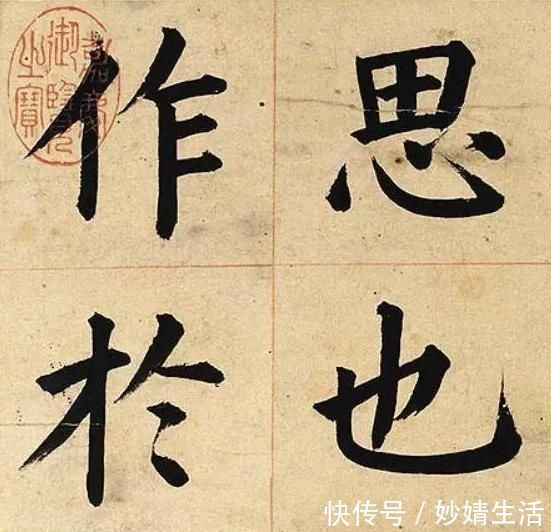 思也
作於
嘉慶御覽之寶
快传号/妙婧生活